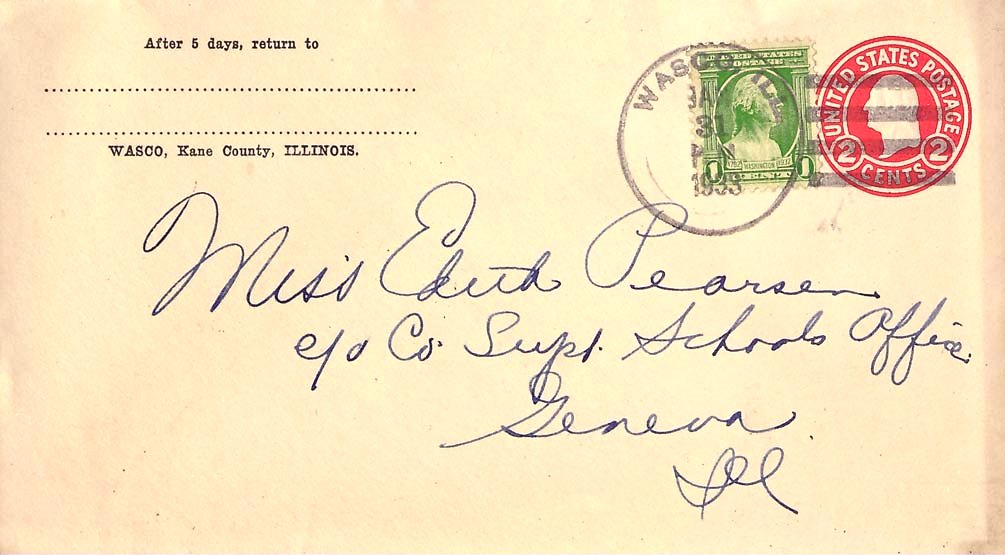 After 5 days, return to
WASCO, Kane County, ILLINOIS.
WASCO ILL.
JAN
31
1933
UNITED STATES
POSTAGE
1732 WASHINGTON 1932
1 CENT 1
UNITED STATES POSTAGE
2 CENTS 2
Miss Edith Pearsen
c/o Co. Supt. Schools Office
Geneva
Ill